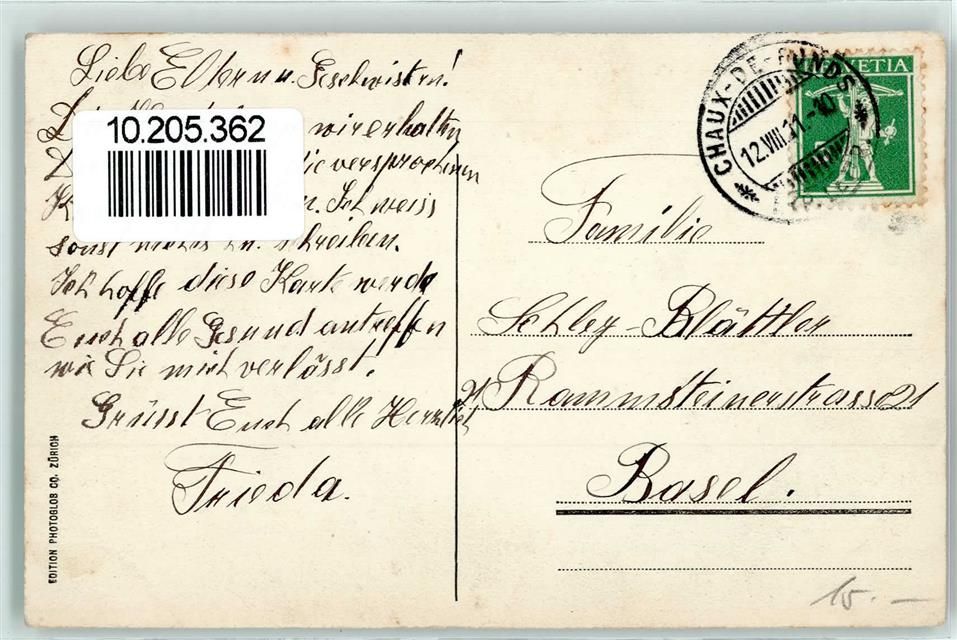 Liebe Eltern u. Geschwistern!
wir erhalten
10.205.362
die versprochenen
Ich weiss
sonst nichts zu schreiben.
Ich hoffe diese Karte werde
Euch alle Gesund antreffen
wie Sie mich verlässt.
Grüsst Euch alle Herzlich
Frieda.
EDITION PHOTOGLOB CO. ZÜRICH
HELVETIA
CHAUX-DE-FONDS
12.VIII.11.-10
Familie
Schley-Blättler
21 Rammsteinerstrasse 21
Basel.
15.-